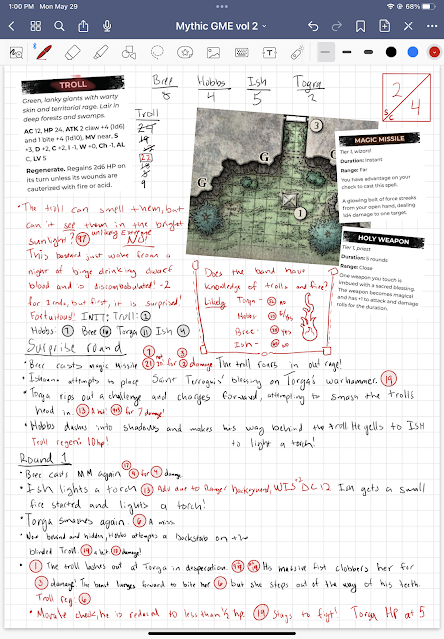 1:00 PM Mon May 29
68%
Mythic GME vol 2
TROLL
Green, lanky giants with warty
skin and territorial rage. Lair in
deep forests and swamps.
AC 12, HP 24, ATK 2 claw +4 (1d6)
and 1 bite +4 (1d10), MV near, S
+3, D +2, C +2, I -1, W +0, Ch -1, AL
C, LV 5
Regenerate. Regains 2d6 HP on
its turn unless its wounds are
cauterized with fire or acid.
Bree Hobbs Ish Togra
8 4 5 2
Troll
24
22
9
2
4
S
C
3
G
G
1
MAGIC MISSILE
Tier 1, wizard
Duration: Instant
Range: Far
You have advantage on your
check to cast this spell.
A glowing bolt of force streaks
from your open hand, dealing
1d4 damage to one target.
HOLY WEAPON
Tier 1, priest
Duration: 5 rounds
Range: Close
One weapon you touch is
imbued with a sacred blessing.
The weapon becomes magical
and has +1 to attack and damage
rolls for the duration.
• The troll can smell them, but
can it see them in the bright
sunlight? 97 unlikely Extreme NO!
This bastard just woke from a
night of binge drinking dwarf
blood and is discombobulated! -2
for 2 rnds, but first, it is surprised!
Fortuitous! INIT: Troll: 1
Hobbs: 7 Bree 16 Torga 11 Ish 4
Does the band have
knowledge of trolls and fire?
Likely Torga - no
Hobbs - yes
Bree - yes
Ish - no
Surprise round
• Bree casts magic missile 21 for 3 damage The troll roars in out rage!
• Ishtanna attempts to place Saint Terragnis' blessing on Torga's warhammer. 19
• Torga rips out a challenge and charges forward, attempting to smash the trolls
head in. 13 A hit! for 7 damage!
• Hobbs dashes into shadows and makes his way behind the troll. He yells to Ish
Troll regen's 10hp! to light a torch!
Round 1
• Bree casts MM again 17 for 4 damage.
• Ish lights a torch 13 Adv due to Ranger background, WIS +2 DC 12 Ish gets a small
fire started and lights a torch!
• Torga smashes again 6 A miss.
• Now behind and hidden, Hobbs attempts a backstab on the
blinded Troll. 19 a hit damage!
• 1 The troll lashes out at Torga in desperation. 19 His massive fist clobbers her for
3 damage! The beast lunges forward to bite her 6 but she steps out of the way of his teeth.
Troll reg. 6
• Morale check, he is reduced to less than 1/2 hp. 19 Stays to fight! Torga HP at 5